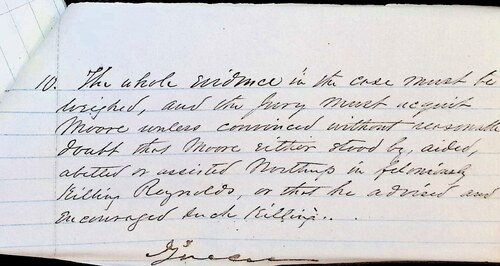 10. The whole evidence in the case must be
weighed, and the Jury must acquit
Moore unless convinced without reasonable
doubt that Moore either stood by, aided,
abetted or assisted Northup in feloniously
killing Reynolds, or that he advised and
encouraged such killing.
Given